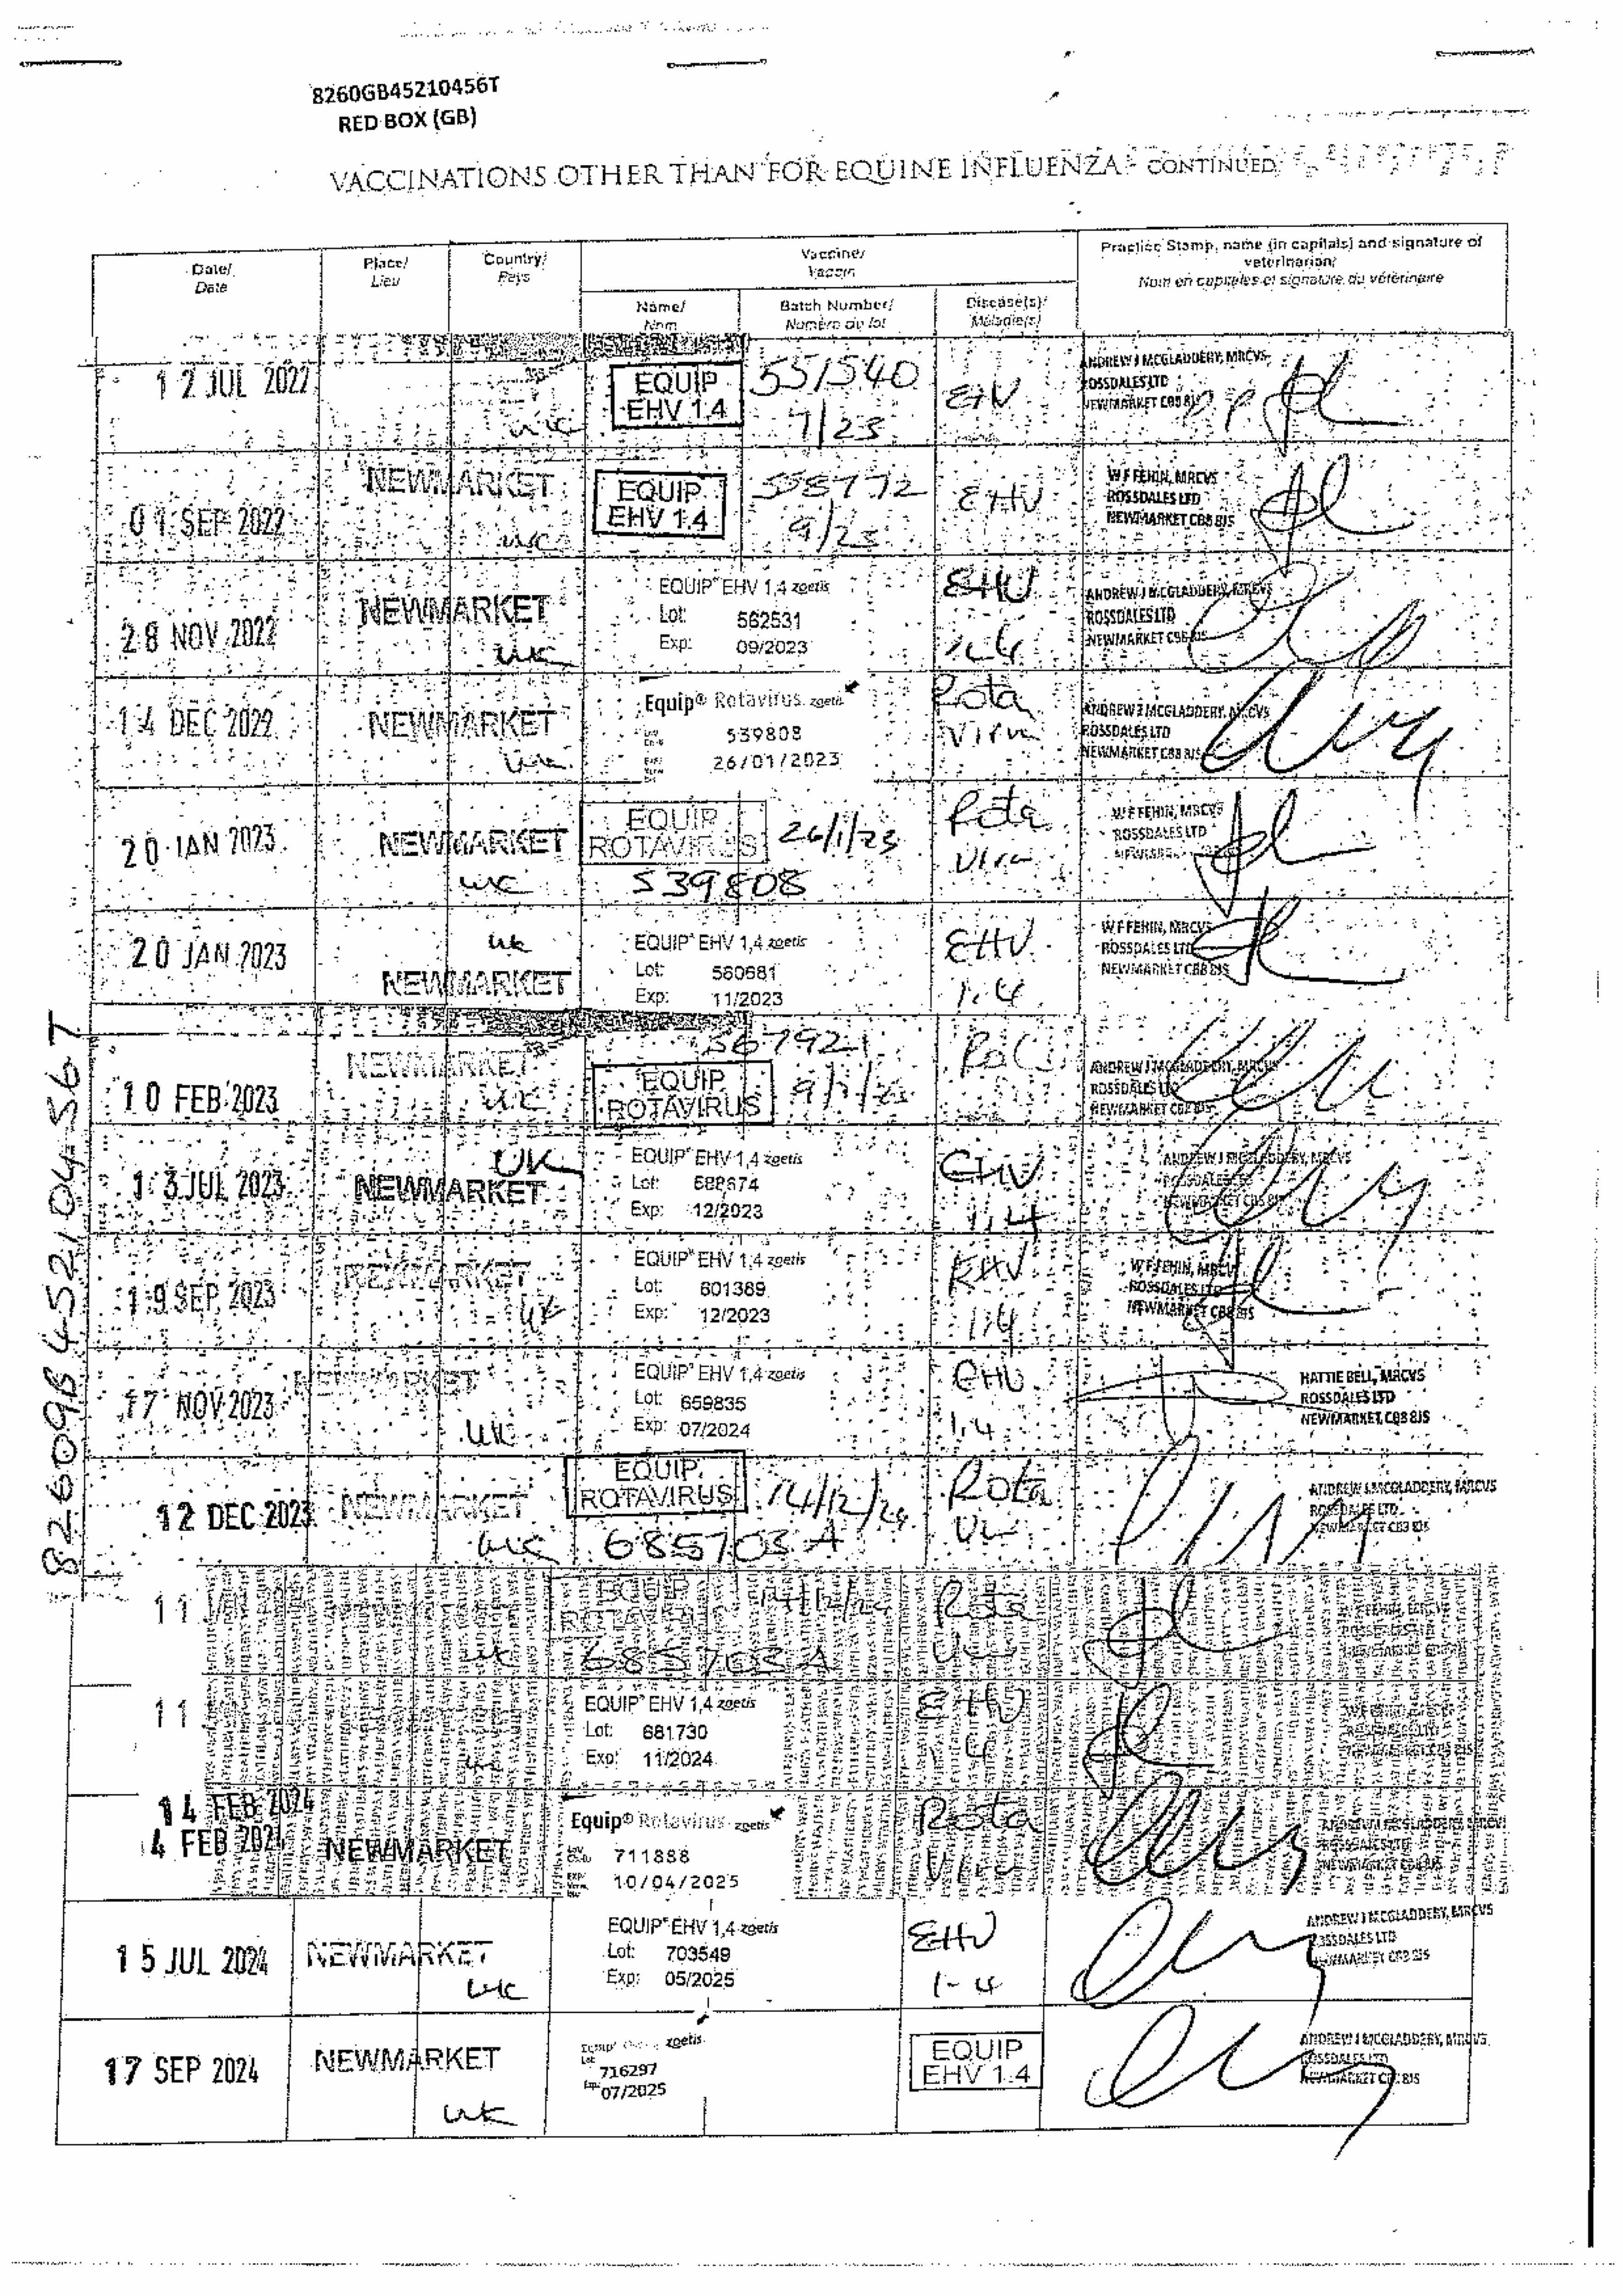 8260GB45210456T
RED BOX (GB)
VACCINATIONS OTHER THAN FOR EQUINE INFLUENZA - CONTINUED
Date/
Date
Place/
Lieu
Country/
Pays
Vaccine/
Vaccin
Name/
Nom
Batch Number/
Numéro du lot
Disease(s)/
Maladie(s)
Practice Stamp, name (in capitals) and signature of
veterinarian/
Nom en capitales et signature du vétérinaire
12 JUL 2022
UK
EQUIP
EHV 1.4
551540
7/23
EHV
ANDREW J MCGLADDERY, MRCVS
ROSSDALES LTD
NEWMARKET CB8 8JS
PP
01 SEP 2022
NEWMARKET
UK
EQUIP
EHV 1.4
558772
9/23
EHV
W F FEHIN, MRCVS
ROSSDALES LTD
NEWMARKET CB8 8JS
28 NOV 2022
NEWMARKET
UK
EQUIP® EHV 1,4 zoetis
Lot: 562531
Exp: 09/2023
EHV
1.4
ANDREW J MCGLADDERY, MRCVS
ROSSDALES LTD
NEWMARKET CB8 8JS
14 DEC 2022
NEWMARKET
UK
Equip® Rotavirus zoetis
539808
26/01/2023
Rota
Virus
ANDREW J MCGLADDERY, MRCVS
ROSSDALES LTD
NEWMARKET CB8 8JS
20 JAN 2023
NEWMARKET
UK
EQUIP
ROTAVIRUS
26/1/23
539808
Rota
Virus
W F FEHIN, MRCVS
ROSSDALES LTD
20 JAN 2023
UK
NEWMARKET
EQUIP® EHV 1,4 zoetis
Lot: 560681
Exp: 11/2023
EHV
1.4
W F FEHIN, MRCVS
ROSSDALES LTD
NEWMARKET CB8 8JS
10 FEB 2023
NEWMARKET
UK
567921
EQUIP
ROTAVIRUS
ANDREW J MCGLADDERY, MRCVS
ROSSDALES LTD
NEWMARKET CB8 8JS
13 JUL 2023
UK
NEWMARKET
EQUIP® EHV 1,4 zoetis
Lot: 588674
Exp: 12/2023
EHV
1.4
ANDREW J MCGLADDERY, MRCVS
ROSSDALES LTD
NEWMARKET CB8 8JS
19 SEP 2023
NEWMARKET
UK
EQUIP® EHV 1,4 zoetis
Lot: 601389
Exp: 12/2023
EHV
1.4
W F FEHIN, MRCVS
ROSSDALES LTD
NEWMARKET CB8 8JS
17 NOV 2023
NEWMARKET
UK
EQUIP® EHV 1,4 zoetis
Lot: 659835
Exp: 07/2024
EHV
1.4
HATTIE BELL, MRCVS
ROSSDALES LTD
NEWMARKET, CB8 8JS
12 DEC 2023
NEWMARKET
UK
EQUIP
ROTAVIRUS
14/12/24
685703 A
Rota
ANDREW J MCGLADDERY, MRCVS
ROSSDALES LTD
NEWMARKET CB8 8JS
11
UK
EQUIP
ROTAVIRUS
14/12/24
685703 A
Rota
11
EQUIP® EHV 1,4 zoetis
Lot: 681730
Exp: 11/2024
EHV
1.4
14 FEB 2024
4 FEB 2024
NEWMARKET
Equip® Rotavirus zoetis
711888
10/04/2025
Rota
Virus
ANDREW J MCGLADDERY, MRCVS
ROSSDALES LTD
NEWMARKET CB8 8JS
15 JUL 2024
NEWMARKET
UK
EQUIP® EHV 1,4 zoetis
Lot: 703549
Exp: 05/2025
EHV
1-4
ANDREW J MCGLADDERY, MRCVS
ROSSDALES LTD
NEWMARKET CB8 8JS
17 SEP 2024
NEWMARKET
UK
zoetis
Lot
716297
Exp: 07/2025
EQUIP
EHV 1.4
ANDREW J MCGLADDERY, MRCVS
ROSSDALES LTD
NEWMARKET CB8 8JS
82609B45210456T